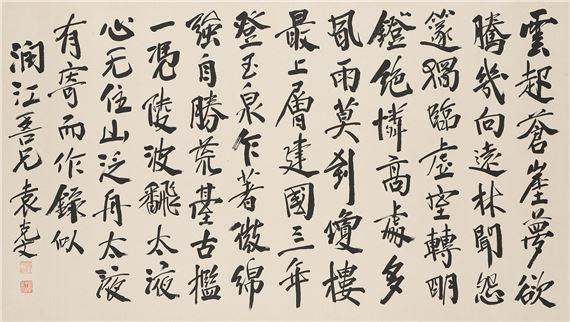 雲起蒼崖夢欲
騰幾向遠林聞怨
篴獨臨虛空轉明
鐙絕憐高處多
風雨莫到瓊樓
最上層建國三年
登玉泉乍著微綿
強自勝荒臺古檻
一憑陵波飜太液
心无住山泛舟太液
有寄而作錄似
潤江吾兄 袁克文